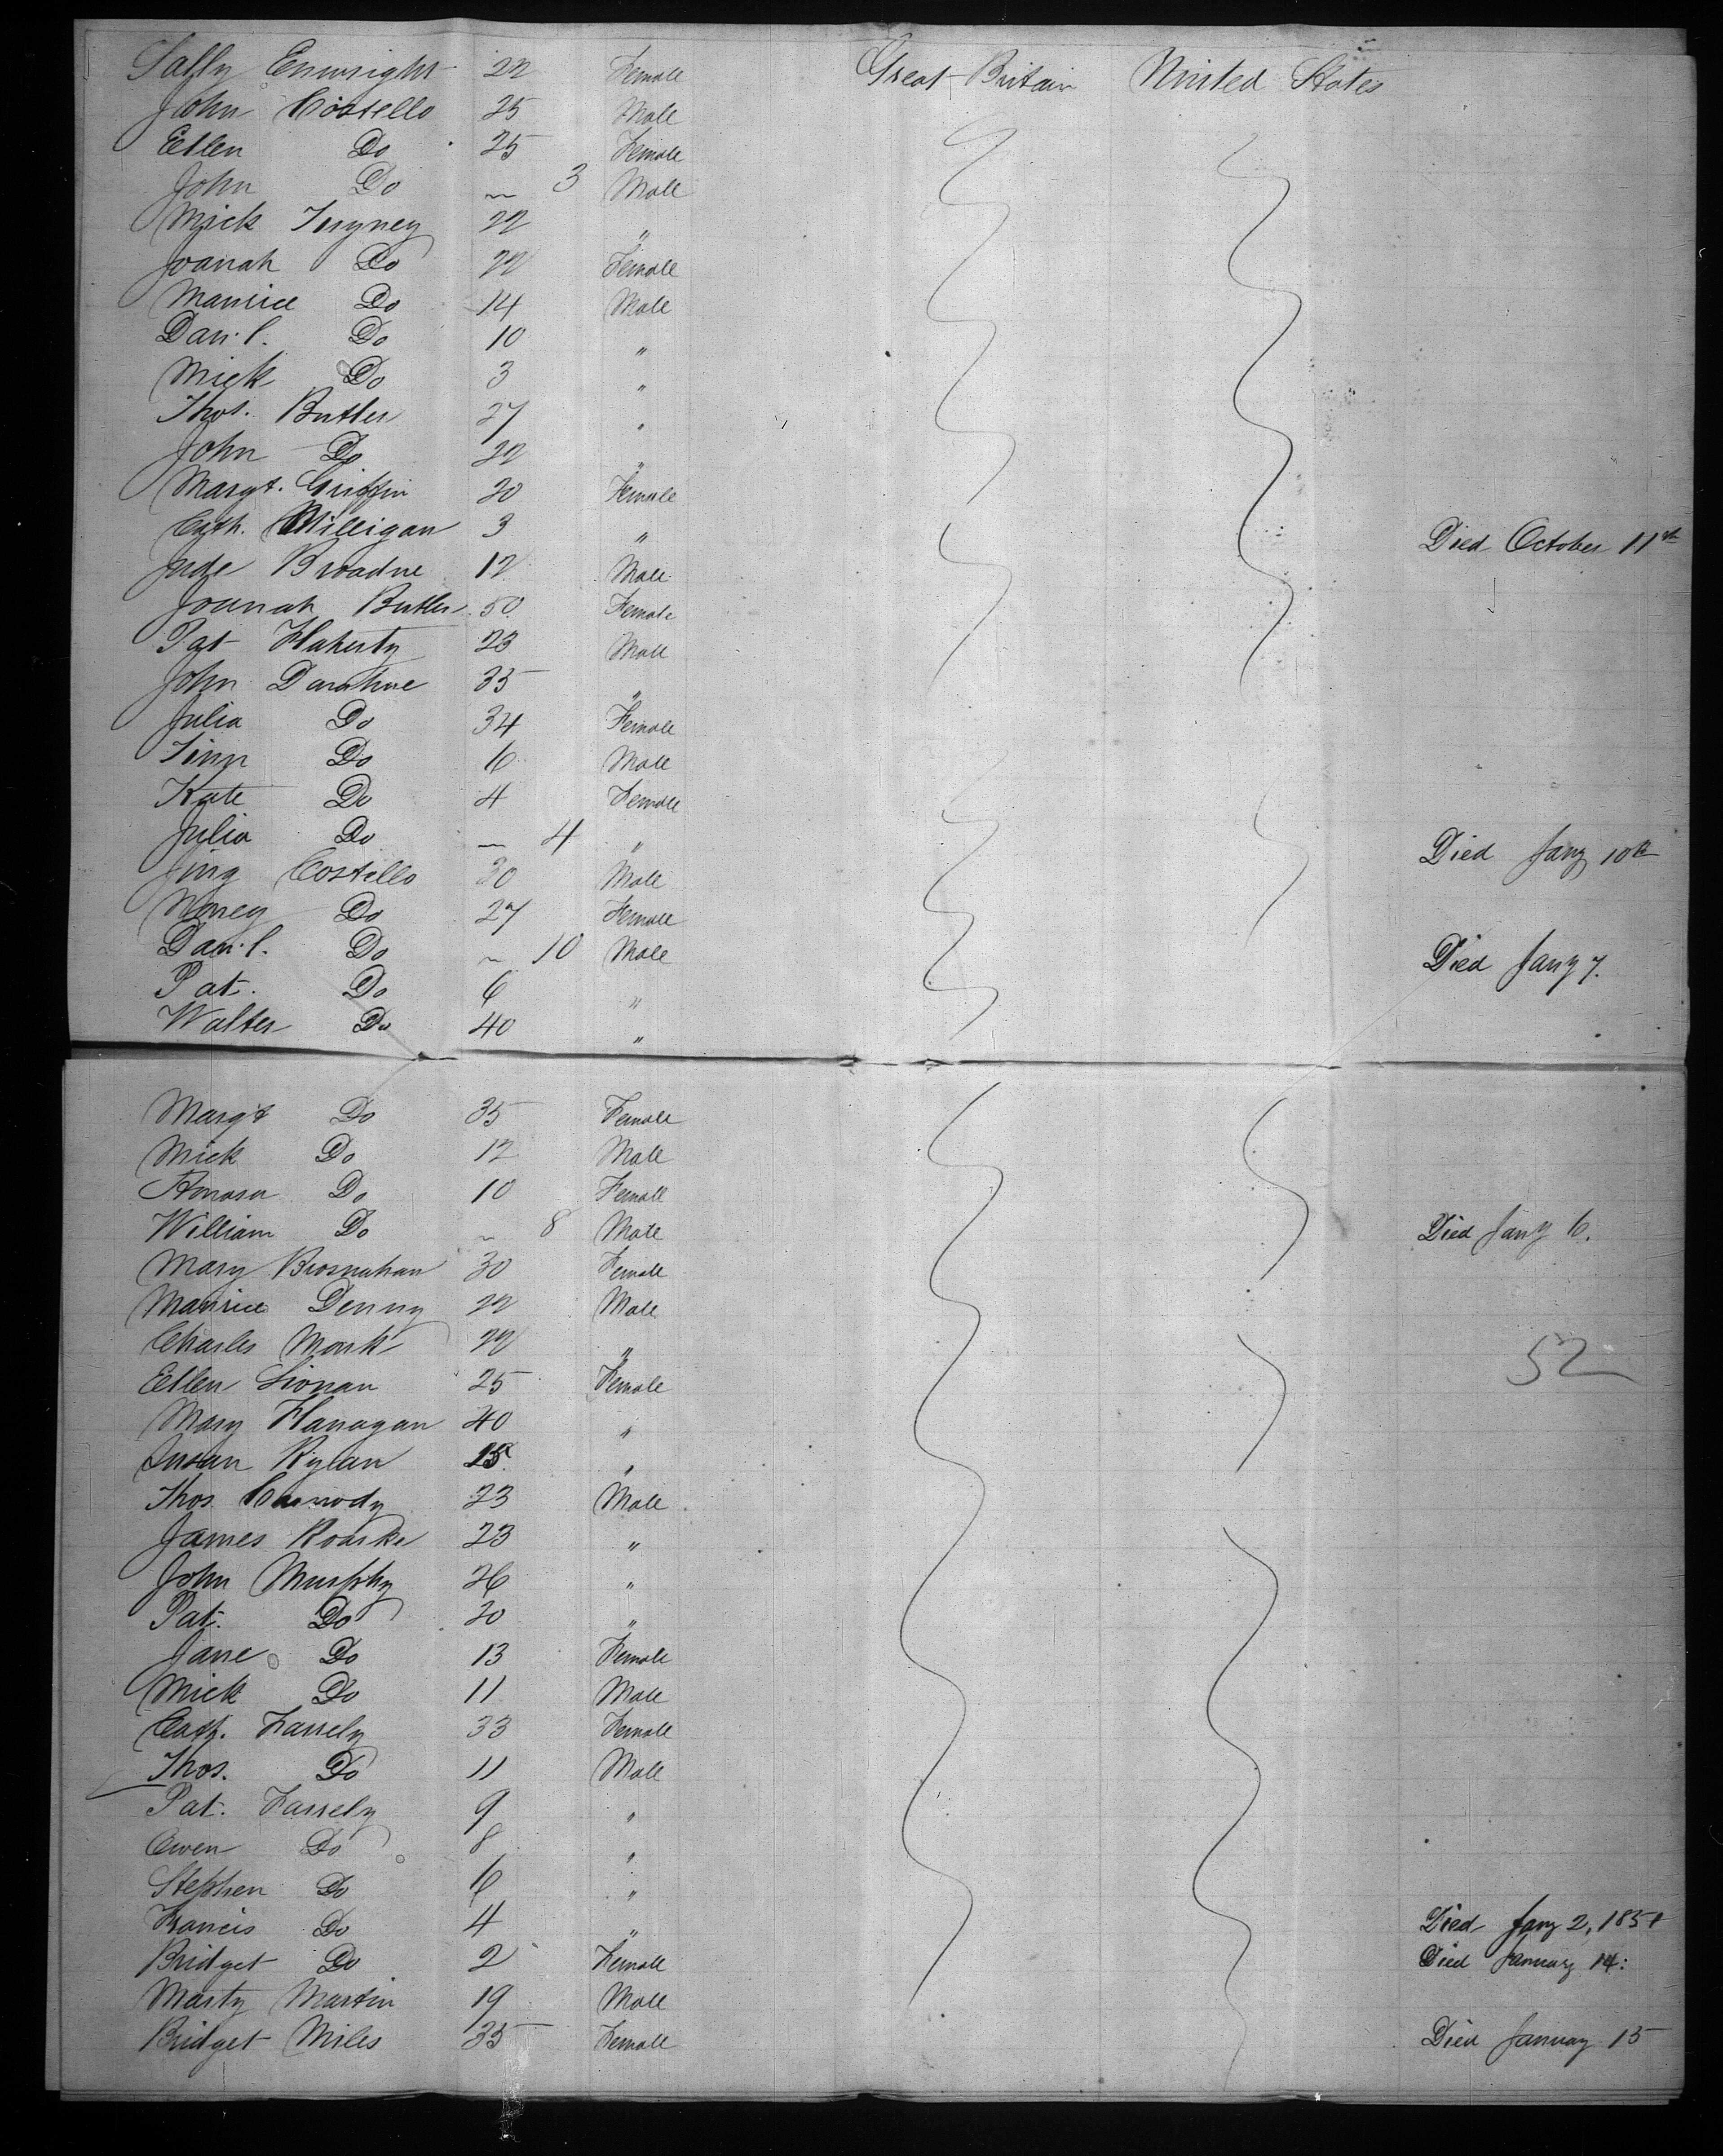 Sally Enwright 22 Female Great Britain United States
John Costello 25 Male
Ellen Do 25 Female
John Do ~ 3 Male
Mick 22 "
Joanah Do 22 Female
Maurice Do 14 Male
Dan.l. Do 10 "
Mick Do 3 "
Thos. Butler 27 "
John Do 22 "
Margt. Griffin 20 Female
Cath. Milligan 3 " Died October 11th
Jude Broadne 12 Male
Joanah Butler 50 Female
Pat Flaherty 23 Male
John Donahue 35 "
Julia Do 34 Female
Do 6 Male
Kate Do 4 Female
Julia Do ~ 4 " Died Jany 10th
Costello 30 Male
Do 27 Female
Dan.l. Do ~ 10 Male Died Jany 7.
Pat. Do 6 "
Walter Do 40 "
Margt Do 35 Female
Mick Do 12 Male
Do 10 Female
William Do ~ 8 Male Died Jany 6.
Mary Brosnahan 30 Female
Maurice Denny 22 Male
Charles Monk 22 "
52
Ellen 25 Female
Mary Flanagan 40 "
Susan Rylan 15 "
Thos. 23 Male
James Roarke 23 "
John Murphy 26 "
Pat. Do 20 "
Jane Do 13 Female
Mick Do 11 Male
Cath. Farrely 33 Female
Thos. Do 11 Male
Pat. Farrely 9 "
Owen Do 8 "
Stephen Do 6 "
Francis Do 4 " Died Jany 2, 1851
Bridget Do 2 Female Died January 14:
Marty Martin 19 Male
Bridget Miles 35 Female Died January 15